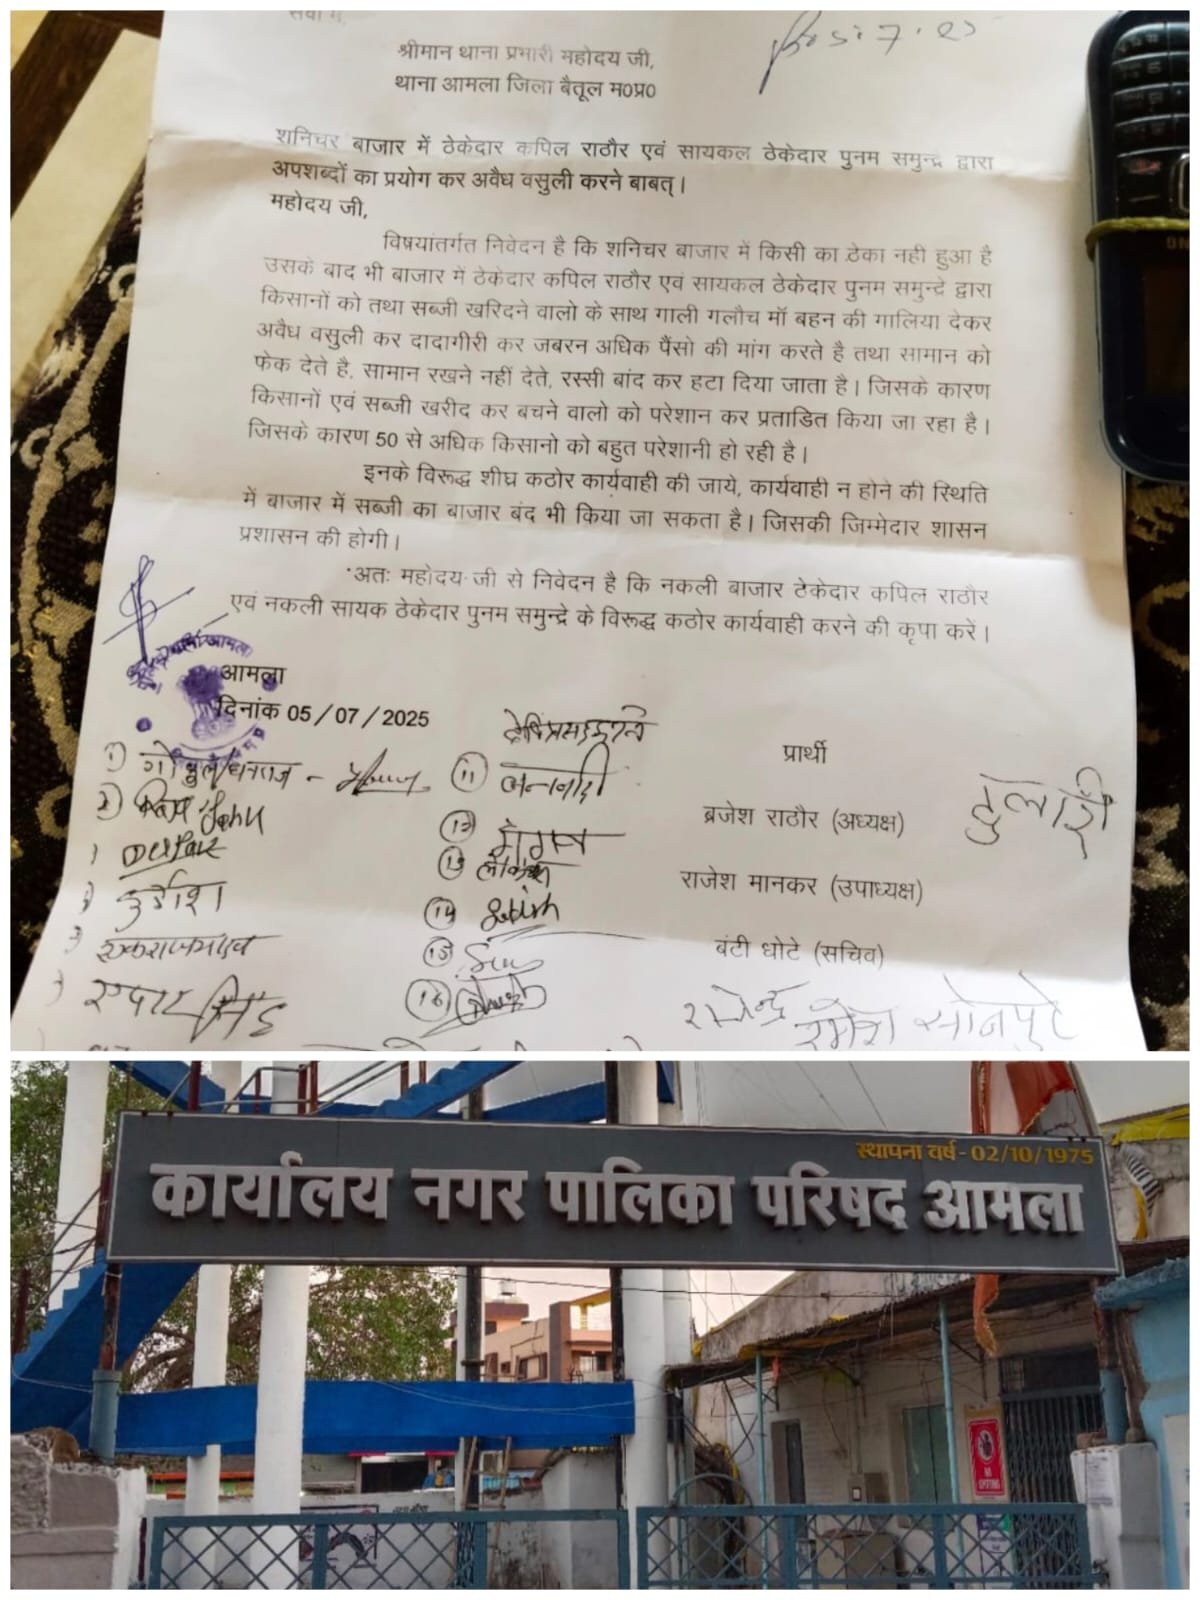 सेवा में,
श्रीमान थाना प्रभारी महोदय जी,
थाना आमला जिला बैतूल म0प्र0
शनिचर बाजार में ठेकेदार कपिल राठौर एवं सायकल ठेकेदार पुनम समुन्द्रे द्वारा
अपशब्दों का प्रयोग कर अवैध वसुली करने बाबत्।
महोदय जी,
विषयांतर्गत निवेदन है कि शनिचर बाजार में किसी का ठेका नही हुआ है
उसके बाद भी बाजार में ठेकेदार कपिल राठौर एवं सायकल ठेकेदार पुनम समुन्द्रे द्वारा
किसानों को तथा सब्जी खरिदने वालो के साथ गाली गलौच मॉ बहन की गालिया देकर
अवैध वसुली कर दादागीरी कर जबरन अधिक पैंसो की मांग करते है तथा सामान को
फेक देते है, सामान रखने नहीं देते, रस्सी बांद कर हटा दिया जाता है। जिसके कारण
किसानों एवं सब्जी खरीद कर बचने वालो को परेशान कर प्रताडित किया जा रहा है।
जिसके कारण 50 से अधिक किसानो को बहुत परेशानी हो रही है।
इनके विरूद्ध शीघ्र कठोर कार्यवाही की जाये, कार्यवाही न होने की स्थिति
में बाजार में सब्जी का बाजार बंद भी किया जा सकता है। जिसकी जिम्मेदार शासन
प्रशासन की होगी।
अतः महोदय जी से निवेदन है कि नकली बाजार ठेकेदार कपिल राठौर
एवं नकली सायक ठेकेदार पुनम समुन्द्रे के विरूद्ध कठोर कार्यवाही करने की कृपा करें।
आमला
दिनांक 05/07/2025
प्रार्थी
दुलारी
ब्रजेश राठौर (अध्यक्ष)
राजेश मानकर (उपाध्यक्ष)
बंटी धोटे (सचिव)
राजेन्द्र
रमेश सोनपुरे
स्थापना वर्ष - 02/10/1975
कार्यालय नगर पालिका परिषद आमला
NO
SPITTING